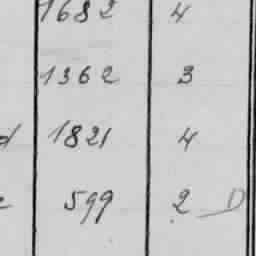 1682 4
1362 3
d 1821 4
599 2 D